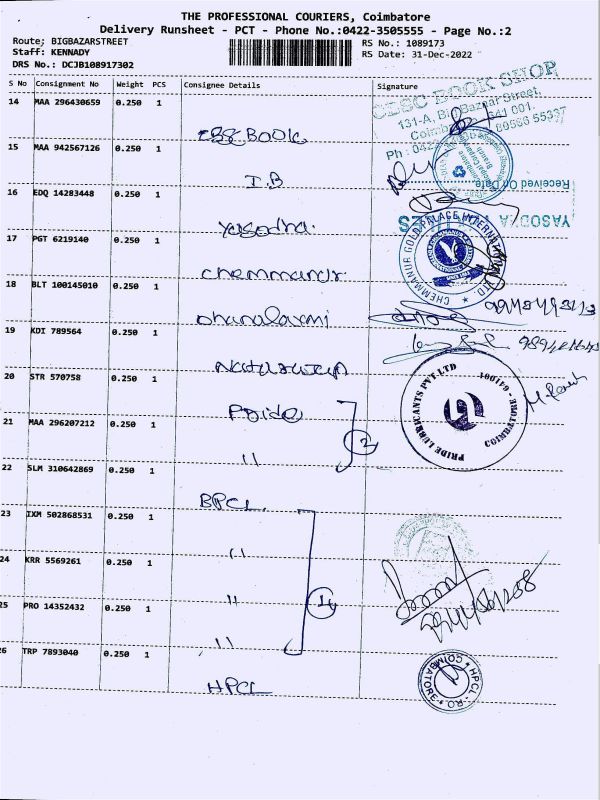 THE PROFESSIONAL COURIERS, Coimbatore
Delivery Runsheet - PCT - Phone No.:0422-3505555 - Page No.:2
Route; BIGBAZARSTREET
Staff: KENNADY
DRS No.: DCJB108917302
RS No.: 1089173
RS Date: 31-Dec-2022
S No Consignment No Weight PCS Consignee Details Signature
14 MAA 296430659 0.250 1
CBSC BOOK
CBSC BOOK SHOP
131-A, Big Bazaar Street,
641 001.
15 MAA 942567126 0.250 1
I.B
Received On Date
16 EDQ 14283448 0.250 1
Yasodha.
17 PGT 6219140 0.250 1
Chemmanur
CHEMMANUR GOLD PALACE INTERNATIONAL
18 BLT 100145010 0.250 1
Dhanalaxmi
19 KDI 789564 0.250 1
20 STR 570758 0.250 1
Pride
PRIDE LUBRICANTS PVT LTD
COIMBATORE - 641001
21 MAA 296207212 0.250 1
"
2
22 SLM 310642869 0.250 1
BPCL
23 IXM 502868531 0.250 1
"
24 KRR 5569261 0.250 1
"
25 PRO 14352432 0.250 1
"
26 TRP 7893040 0.250 1
HPCL
HPCL-RO
COIMBATORE